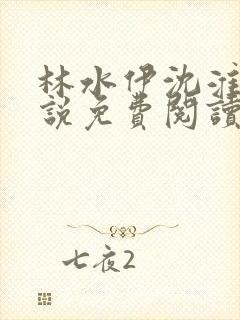 林水伊沈淮
說免費閱讀
七夜2